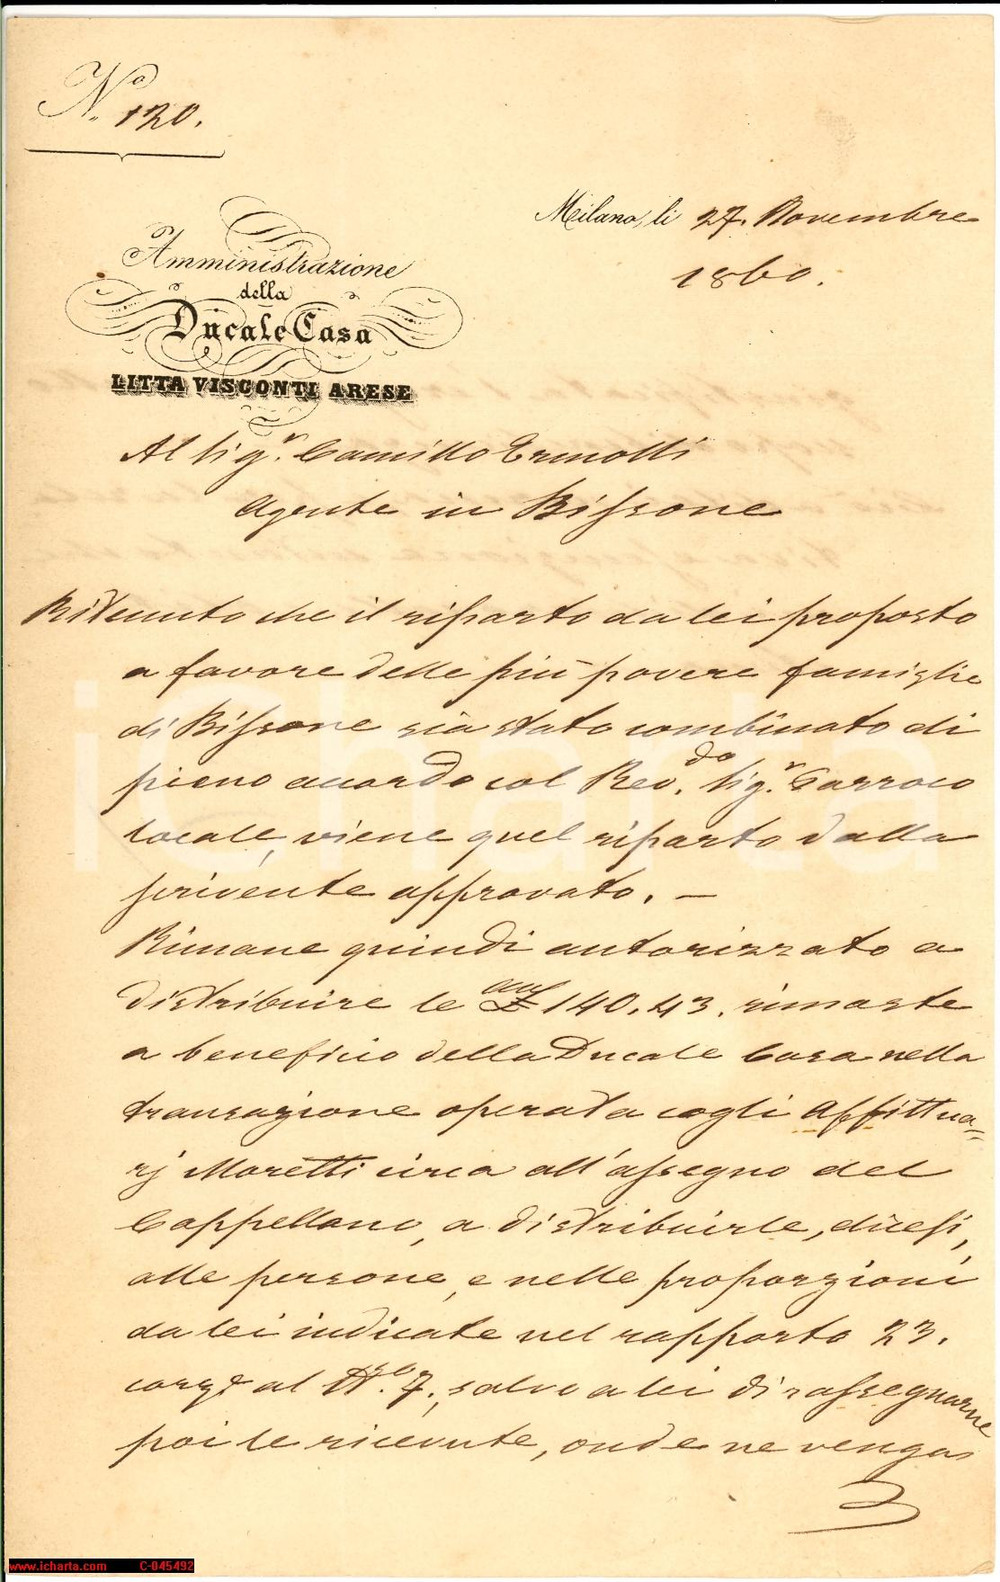 N.o 120.
Milano, li 27. Novembre
1860.
Amministrazione
della
Ducale Casa
LITTA VISCONTI ARESE
Al Sig.r Camillo Ermolli
Agente in Bissone
Ritenuto che il riparto da lei proposto
a favore delle più povere famiglie
di Bissone sia stato combinato di
pieno accordo col Rev.do Sig.r Parroco
locale, viene quel riparto dalla
scrivente approvato. —
Rimane quindi autorizzato a
distribuire le aus £ 140.43. rimaste
a beneficio della Ducale Casa nella
transazione operata cogli Affittua=
rj Moretti circa all'assegno del
Cappellano, a distribuirle, dicesi,
alle persone, e nelle proporzioni
da lei indicate nel rapporto 23.
corr.e al N.o 7, salvo a lei di rassegnarne
poi le ricevute, onde ne vengas
iCharta
www.icharta.com C-045492